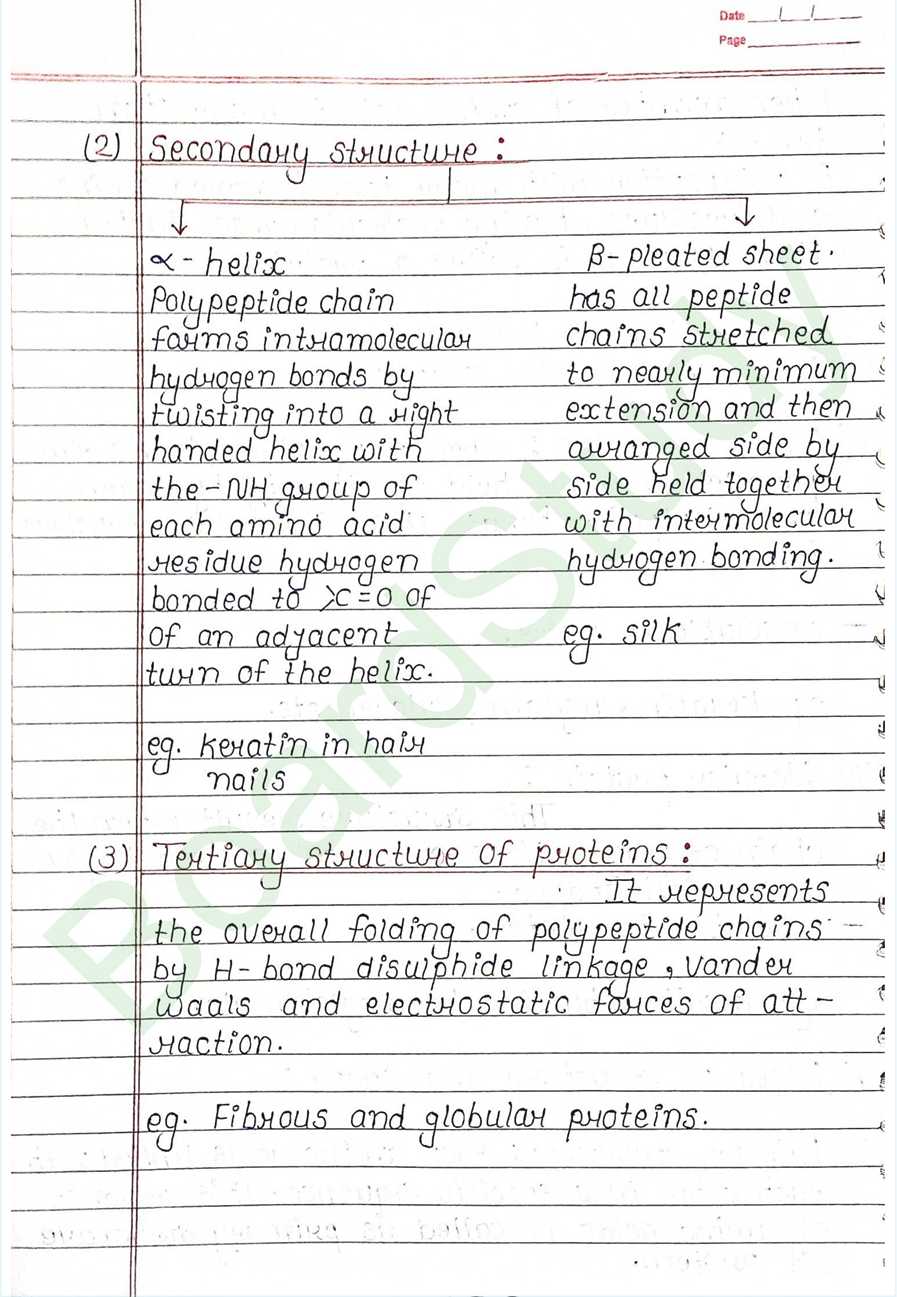 Date / /
Page
(2) Secondary structure :
α - helix
Polypeptide chain
forms intramolecular
hydrogen bonds by
twisting into a right
handed helix with
the -NH group of
each amino acid
residue hydrogen
bonded to >C=O of
of an adjacent
turn of the helix.
eg. Keratin in hair
nails
β- pleated sheet.
has all peptide
chains stretched
to nearly minimum
extension and then
arranged side by
side held together
with intermolecular
hydrogen bonding.
eg. silk
(3) Tertiary structure of proteins :
It represents
the overall folding of polypeptide chains -
by H-bond disulphide linkage , Vander
waals and electrostatic forces of att -
raction.
eg. Fibrous and globular proteins.
BoardStudy